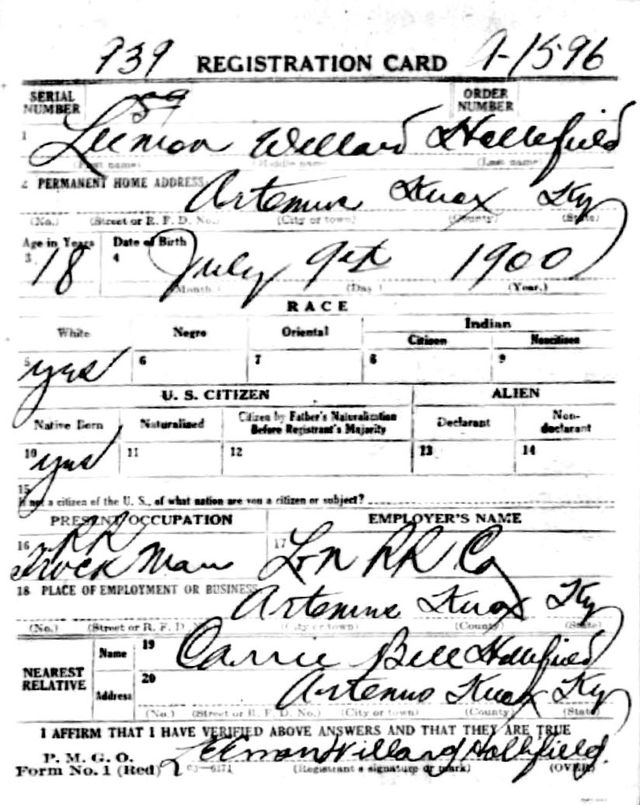 939 REGISTRATION CARD A-1596
SERIAL NUMBER 59 ORDER NUMBER
1 Leemon Willard Hollifield
(First name) (Middle name) (Last name)
2 PERMANENT HOME ADDRESS: Artemus Knox Ky
(No.) (Street or R. F. D. No.) (City or town) (County) (State)
Age in Years Date of Birth
3 18 4 July 9th 1900
(Month.) (Day.) (Year.)
RACE
White Negro Oriental Indian
Citizen Noncitizen
5 yes 6 7 8 9
U. S. CITIZEN ALIEN
Native Born Naturalized Citizen by Father's Naturalization Before Registrant's Majority Declarant Non-declarant
10 yes 11 12 13 14
15
If not a citizen of the U. S., of what nation are you a citizen or subject?
PRESENT OCCUPATION EMPLOYER'S NAME
16 RR Track Man 17 L & N RR Co
18 PLACE OF EMPLOYMENT OR BUSINESS:
Artemus Knox Ky
(No.) (Street or R. F. D. No.) (City or town) (County) (State)
NEAREST RELATIVE
Name 19 Carrie Bell Hollifield
Address 20 Artemus Knox Ky
(No.) (Street or R. F. D. No.) (City or town) (County) (State)
I AFFIRM THAT I HAVE VERIFIED ABOVE ANSWERS AND THAT THEY ARE TRUE
P. M. G. O.
Form No. 1 (Red) 03-6171 Leemon Willard Hollifield.
(Registrant's signature or mark) (OVER)